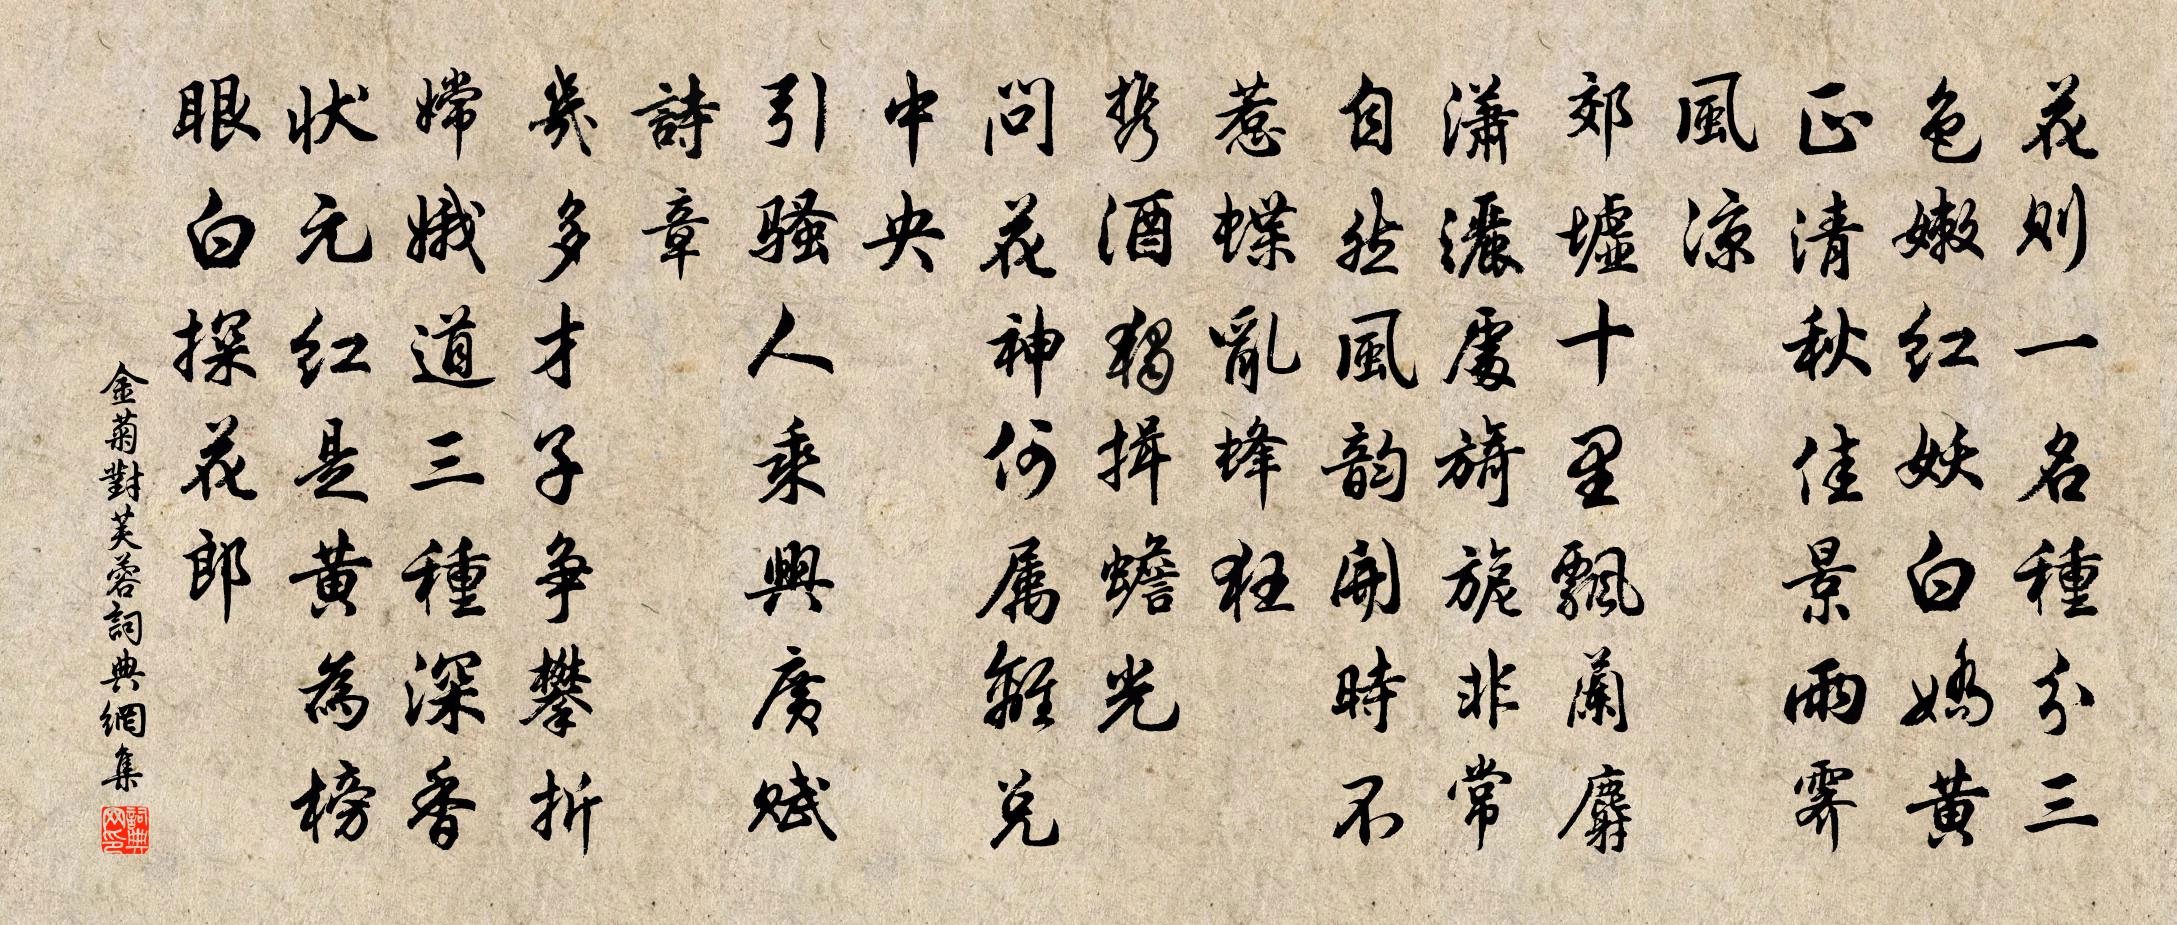 花則一名種分三
色嫩紅妖白嬌黃
正清秋佳景雨霽
風涼
郊墟十里飄蘭麝
瀟灑處旖旎非常
自然風韵開時不
惹蝶亂蜂狂
携酒獨揖蟾光
問花神何屬離兌
中央
引騷人乘興廣賦
詩章
幾多才子爭攀折
嫦娥道三種深香
狀元紅是黃為榜
眼白探花郎
金菊對芙蓉詞典網集
詞典網印